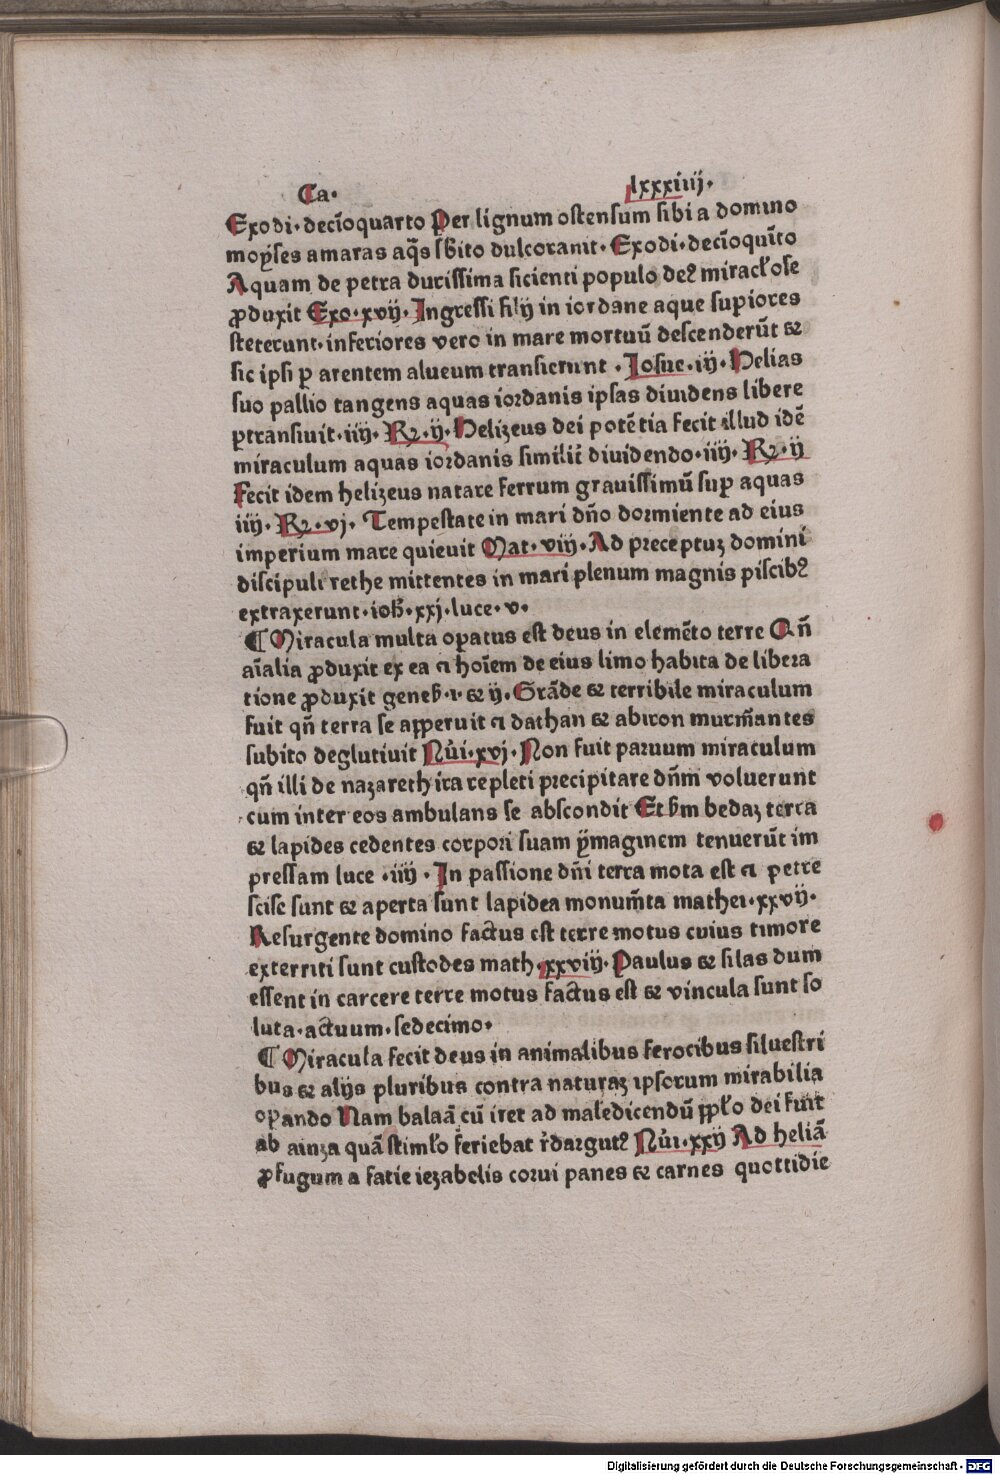 Ca. lxxxiiij.
Exodi. decīoquarto Per lignum ostensum sibi a domino
moyses amaras aq̄s sb̄ito dulcorauit. Exodi. decīoquīto
Aquam de petra durissima sicienti populo deꝰ miracłose
ꝓduxit Exo. xvij. Ingressi filij in iordane aque suꝑiores
steterunt. inferiores vero in mare mortuū descenderūt et
sic ipsi ꝑ arentem alueum transierunt . Iosue. iij. Helias
suo pallio tangens aquas iordanis ipsas diuidens libere
ꝑtransiuit. iiij. Rꝝ. ij. Helizeus dei potētia fecit illud idē
miraculum aquas iordanis similit̄ diuidendo. iiij. Rꝝ. ij
Fecit idem helizeus natare ferrum grauissimū suꝑ aquas
iiij. Rꝝ. vj. Tempestate in mari dn̄o dormiente ad eius
imperium mare quieuit Mat. viij. Ad preceptuꝫ domini
discipuli rethe mittentes in mari plenum magnis piscibꝰ
extraxerunt. ioh̄. xxj. luce. v.
¶ Miracula multa oꝑatus est deus in elemēto terre Qn̄
aīalia ꝓduxit ex ea ⁊ hoīem de eius limo habita de libera
tione ꝓduxit geneß. i. et ij. Grāde et terribile miraculum
fuit qn̄ terra se aꝑꝑeruit ⁊ dathan et abiron murm̄antes
subito deglutiuit Nūi. xvj. Non fuit paruum miraculum
qn̄ illi de nazareth ira repleti precipitare dn̄m voluerunt
cum inter eos ambulans se abscondit Et b̄m bedaꝫ terra
et lapides cedentes corpori suam ymaginem tenuerūt im
pressam luce . iiij . In passione dn̄i terra mota est ⁊ petre
scise sunt et aperta sunt lapidea monum̄ta mathei. xxvij.
Resurgente domino factus est terre motus cuius timore
exterriti sunt custodes math. xxviij. Paulus et silas dum
essent in carcere terre motus factus est et vincula sunt so
luta. actuum. sedecimo.
¶ Miracula fecit deus in animalibus ferocibus siluestri
bus et alijs pluribus contra naturaꝫ ipsorum mirabilia
oꝑando Nam balaā cū iret ad maledicendū ꝑꝑło dei fuit
ab ainza quā stimło feriebat r̄dargutꝰ Nūi. xxij Ad heliā
ꝓfugum a fatie iezabelis corui panes et carnes quottidie
Digitalisierung gefördert durch die Deutsche Forschungsgemeinschaft - DFG